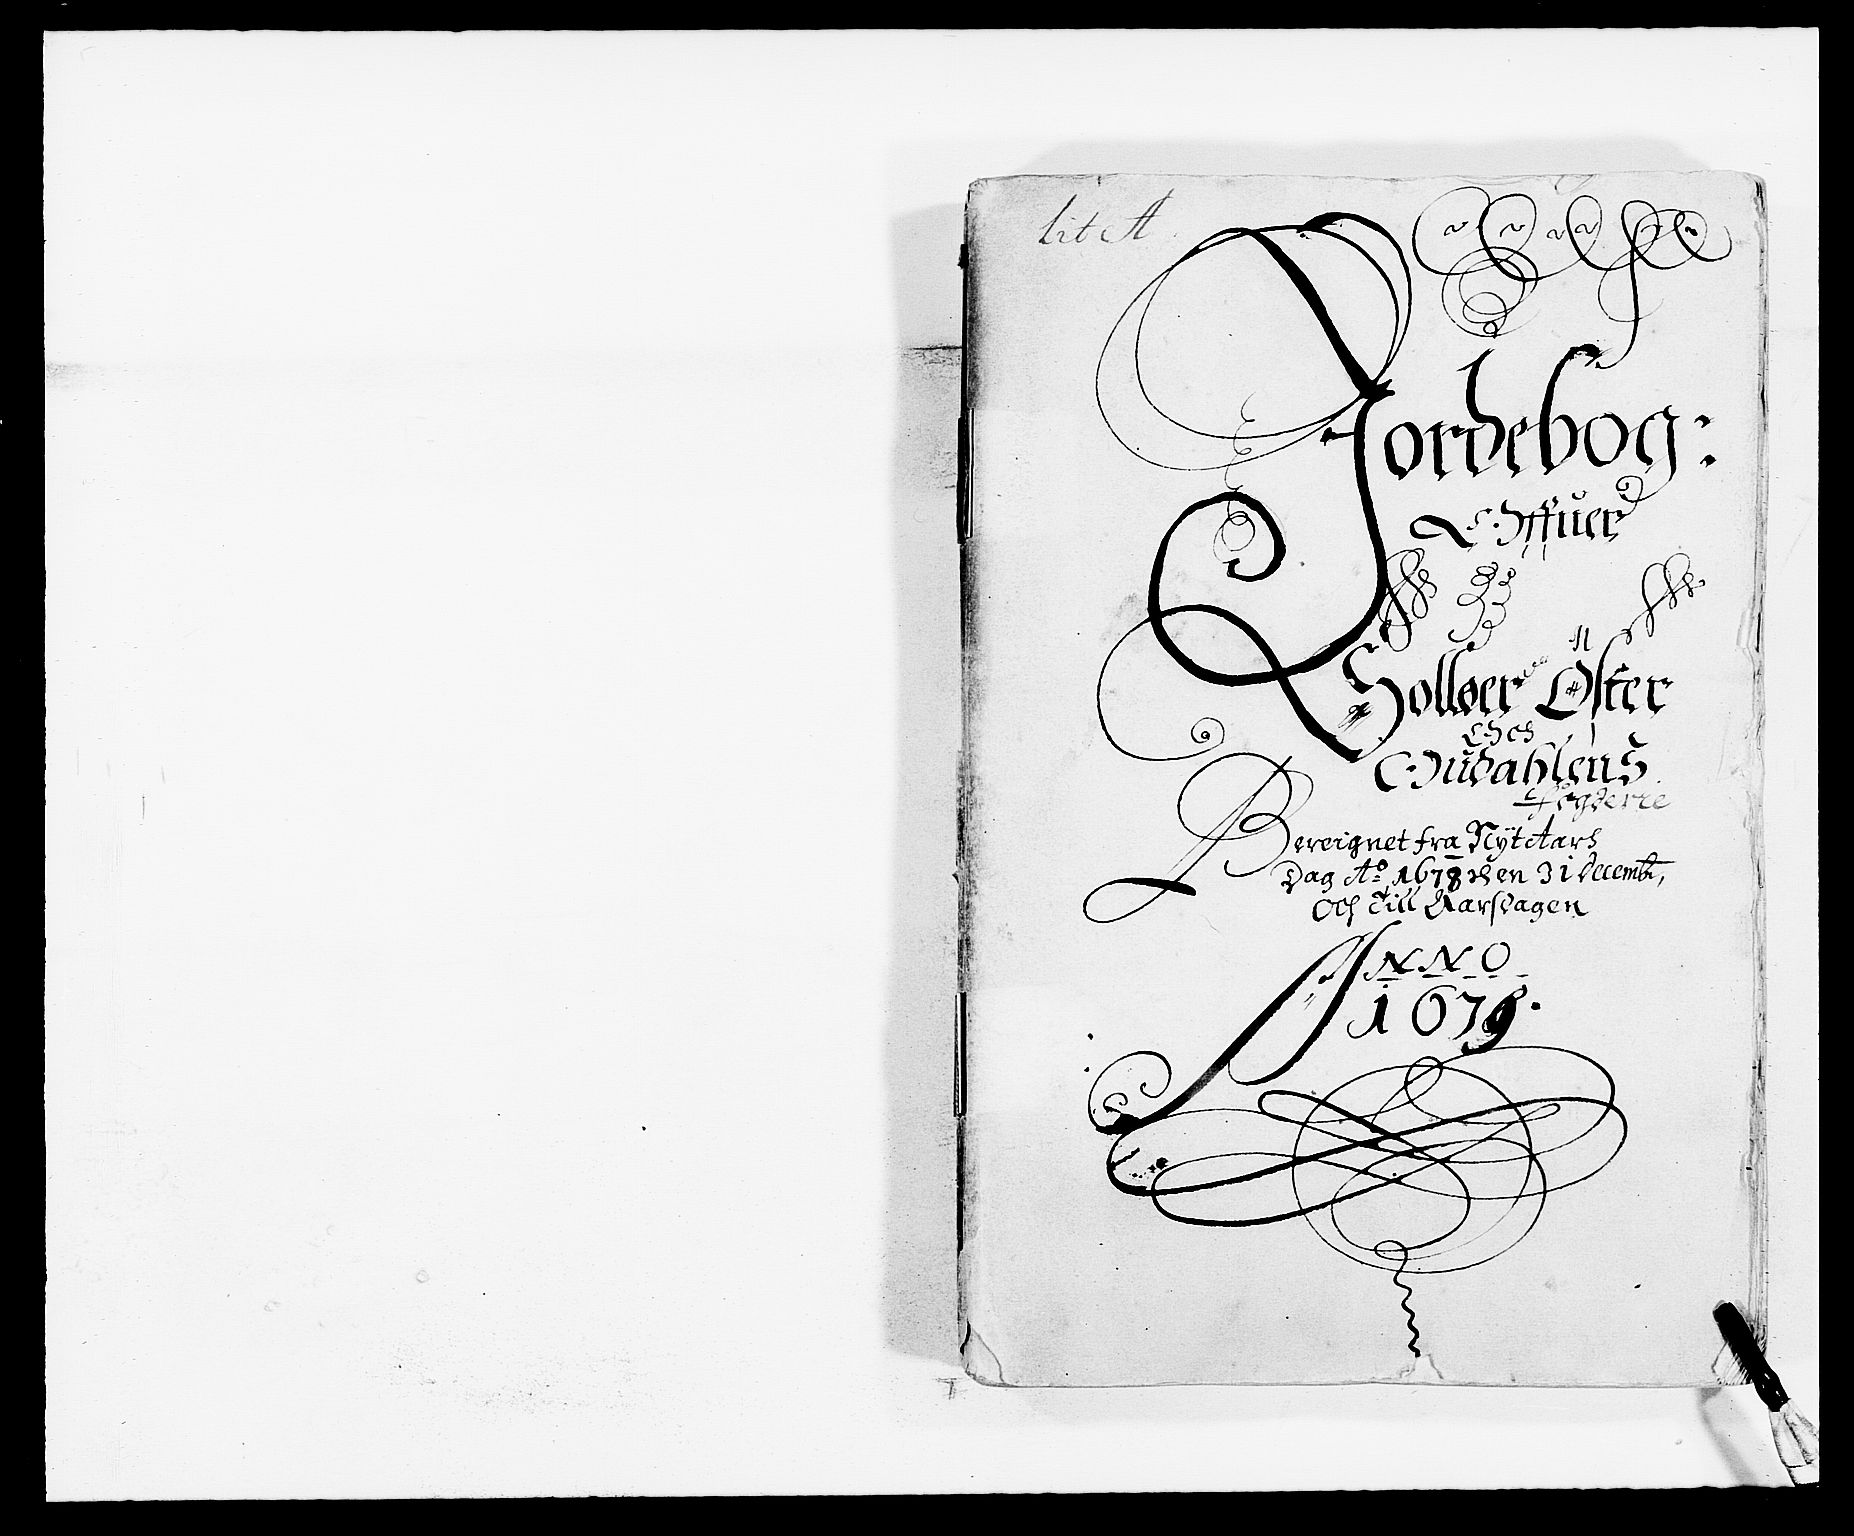 lit A
Jordebog:
Offuer
Solløer Öster
Och
Oudahlens
fogderre
Bereignet fra Nÿt Aars
Dag Ao 1678 den 31 decemb:,
Och Till Aarsdagen
ANNO
1679.